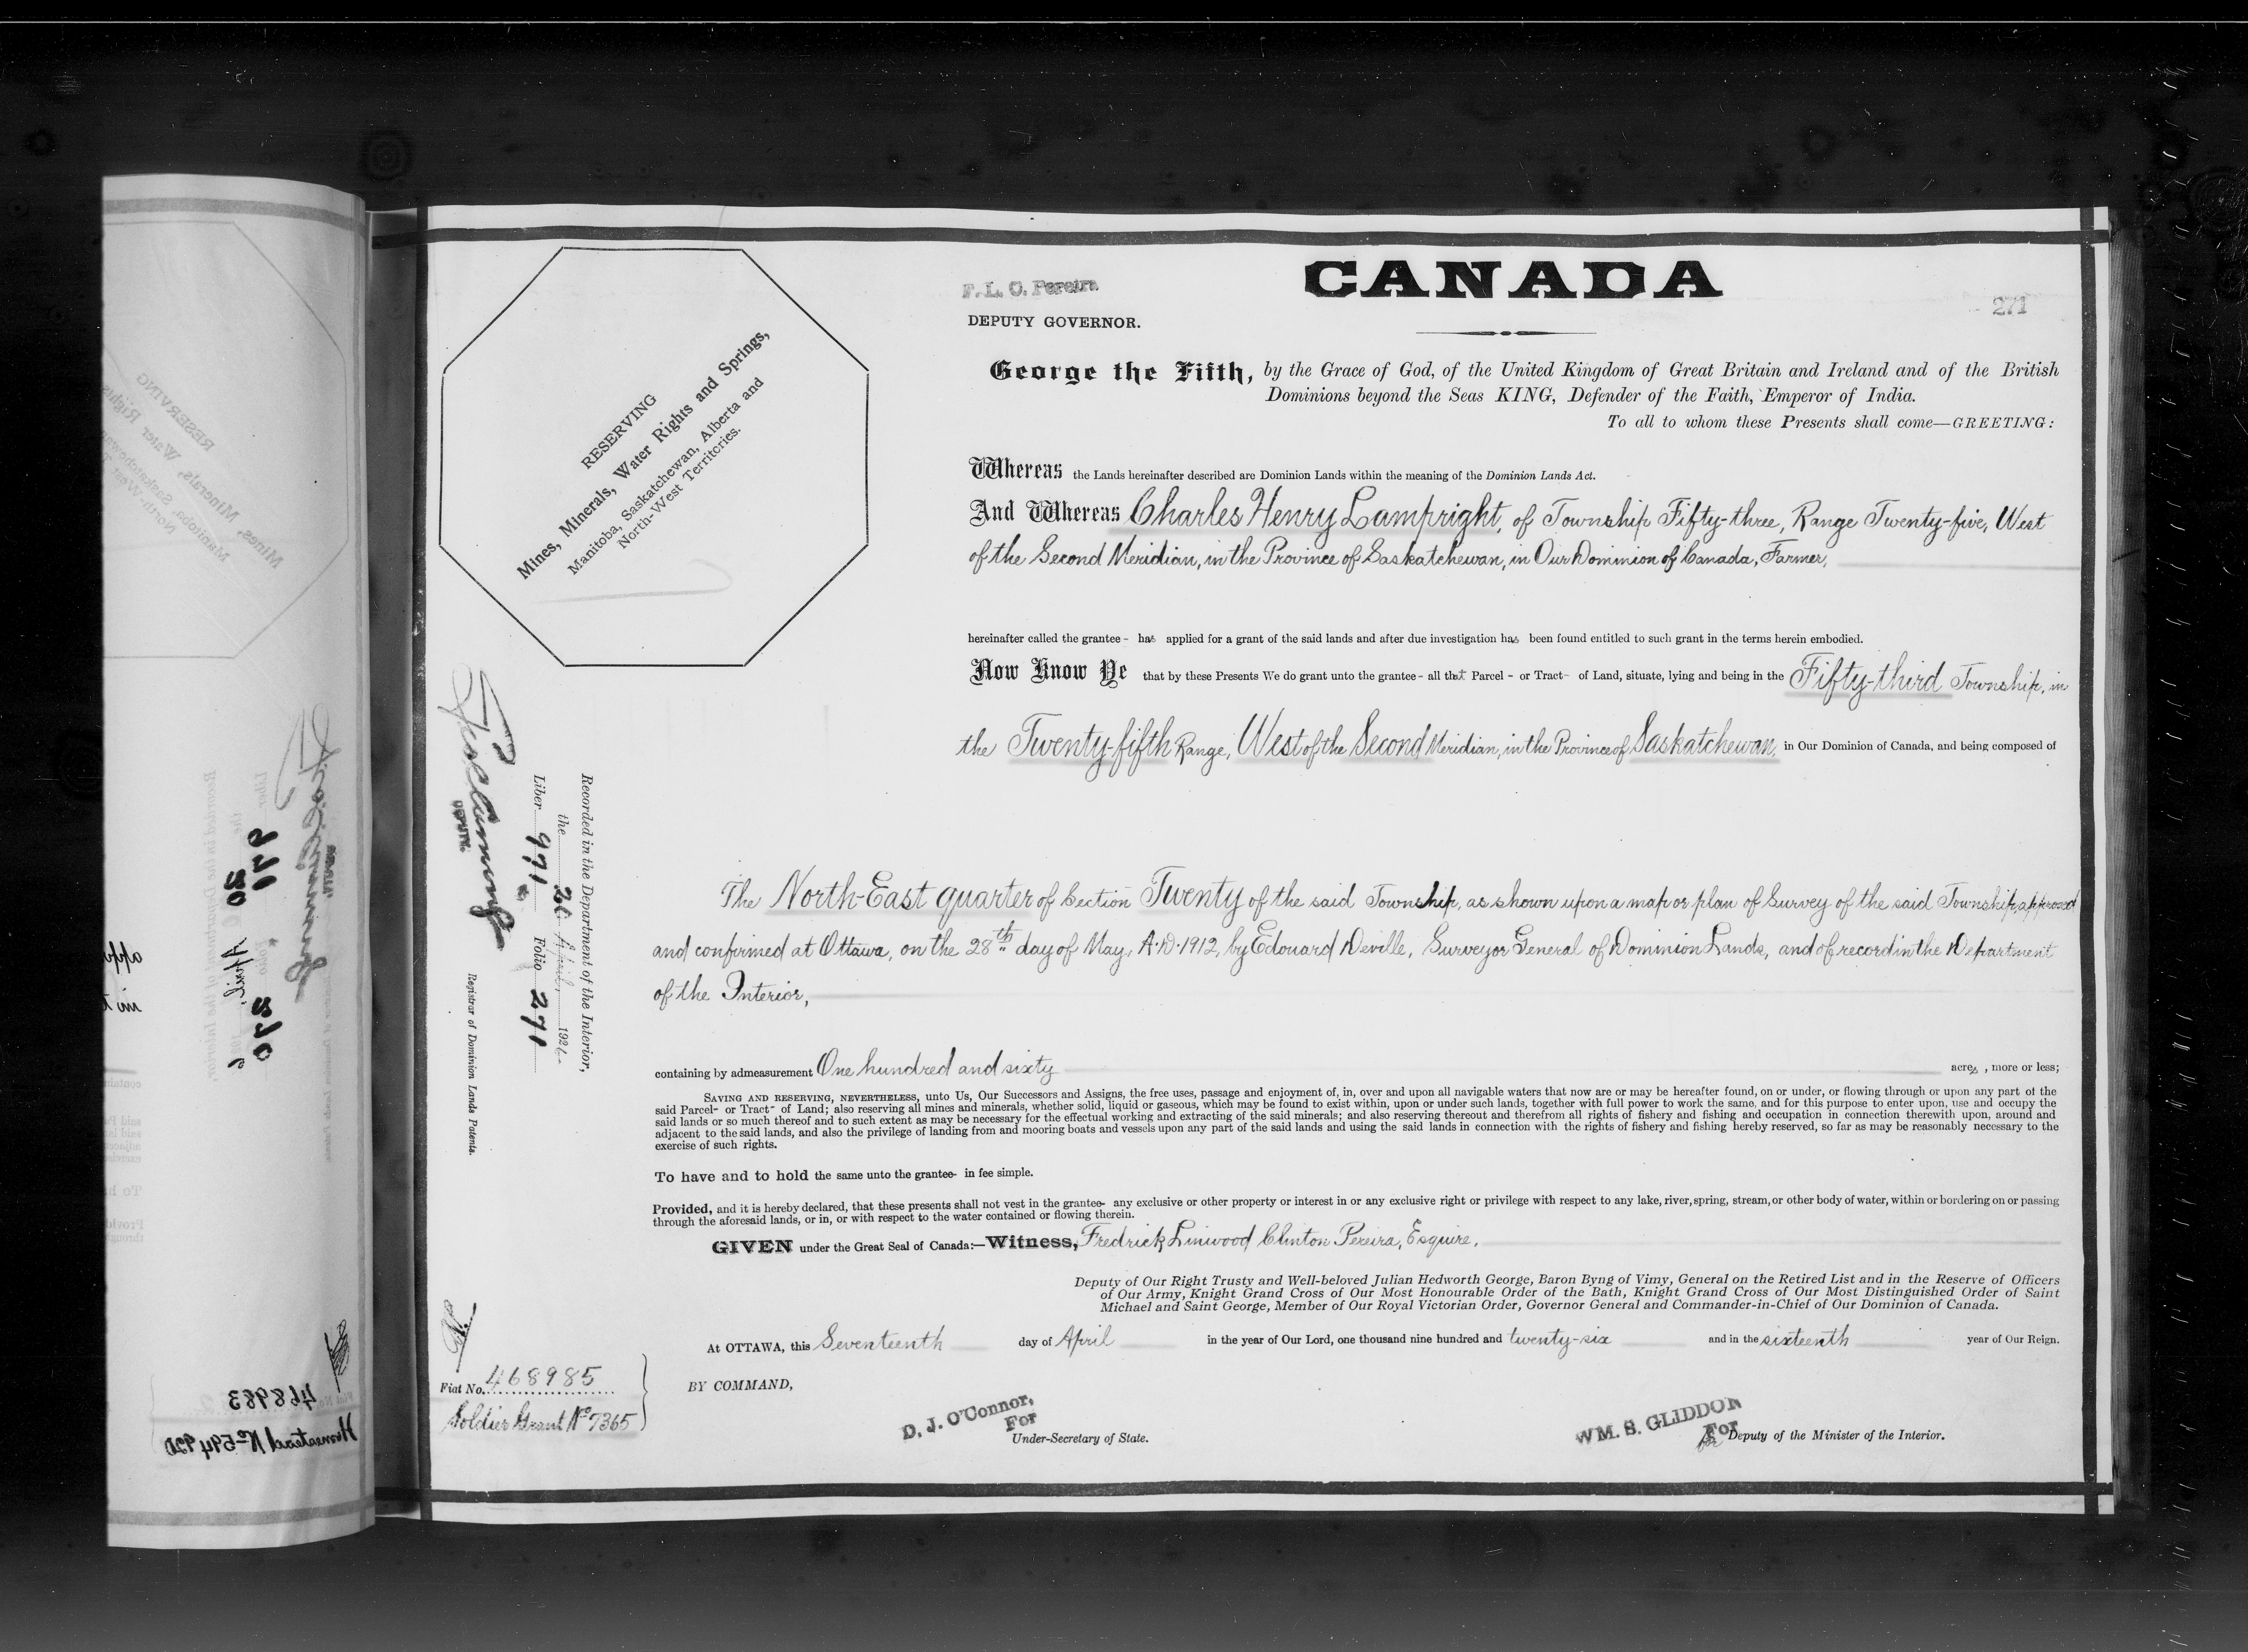 CANADA
F. L. C. Pereira
DEPUTY GOVERNOR.
271
George the Fifth, by the Grace of God, of the United Kingdom of Great Britain and Ireland and of the British
Dominions beyond the Seas KING, Defender of the Faith, Emperor of India.
To all to whom these Presents shall come—GREETING:
RESERVING
Mines, Minerals, Water Rights and Springs,
Manitoba, Saskatchewan, Alberta and
North-West Territories.
Whereas the Lands hereinafter described are Dominion Lands within the meaning of the Dominion Lands Act.
And Whereas Charles Henry Lampright, of Township Fifty-three, Range Twenty-five, West
of the Second Meridian, in the Province of Saskatchewan, in Our Dominion of Canada, Farmer,
hereinafter called the grantee - has applied for a grant of the said lands and after due investigation has been found entitled to such grant in the terms herein embodied.
Now Know Ye that by these Presents We do grant unto the grantee - all that Parcel - or Tract - of Land, situate, lying and being in the Fifty-third Township, in
the Twenty-fifth Range, West of the Second Meridian, in the Province of Saskatchewan, in Our Dominion of Canada, and being composed of
The North-East quarter of Section Twenty of the said Township, as shown upon a map or plan of Survey of the said Township, approved
and confirmed at Ottawa, on the 28th day of May, A.D. 1912, by Edouard Deville, Surveyor General of Dominion Lands, and of record in the Department
of the Interior,
containing by admeasurement One hundred and sixty acres, more or less;
SAVING AND RESERVING, NEVERTHELESS, unto Us, Our Successors and Assigns, the free uses, passage and enjoyment of, in, over and upon all navigable waters that now are or may be hereafter found, on or under, or flowing through or upon any part of the
said Parcel- or Tract- of Land; also reserving all mines and minerals, whether solid, liquid or gaseous, which may be found to exist within, upon or under such lands, together with full power to work the same, and for this purpose to enter upon, use and occupy the
said lands or so much thereof and to such extent as may be necessary for the effectual working and extracting of the said minerals; and also reserving thereout and therefrom all rights of fishery and fishing and occupation in connection therewith upon, around and
adjacent to the said lands, and also the privilege of landing from and mooring boats and vessels upon any part of the said lands and using the said lands in connection with the rights of fishery and fishing hereby reserved, so far as may be reasonably necessary to the
exercise of such rights.
To have and to hold the same unto the grantee- in fee simple.
Provided, and it is hereby declared, that these presents shall not vest in the grantee- any exclusive or other property or interest in or any exclusive right or privilege with respect to any lake, river, spring, stream, or other body of water, within or bordering on or passing
through the aforesaid lands, or in, or with respect to the water contained or flowing therein.
GIVEN under the Great Seal of Canada:—Witness, Fredrick Linwood Clinton Pereira, Esquire,
Deputy of Our Right Trusty and Well-beloved Julian Hedworth George, Baron Byng of Vimy, General on the Retired List and in the Reserve of Officers
of Our Army, Knight Grand Cross of Our Most Honourable Order of the Bath, Knight Grand Cross of Our Most Distinguished Order of Saint
Michael and Saint George, Member of Our Royal Victorian Order, Governor General and Commander-in-Chief of Our Dominion of Canada.
At OTTAWA, this Seventeenth day of April in the year of Our Lord, one thousand nine hundred and twenty-six and in the sixteenth year of Our Reign.
BY COMMAND,
D. J. O'Connor,
For
Under-Secretary of State.
WM. S. GLIDDON
For
Deputy of the Minister of the Interior.
Recorded in the Department of the Interior,
the 20 April, 1926
Liber 971 Folio 271
DEPUTY
Registrar of Dominion Lands Patents.
Fiat No. 468985
Soldier Grant No 7365
468983
Homestead No 594920